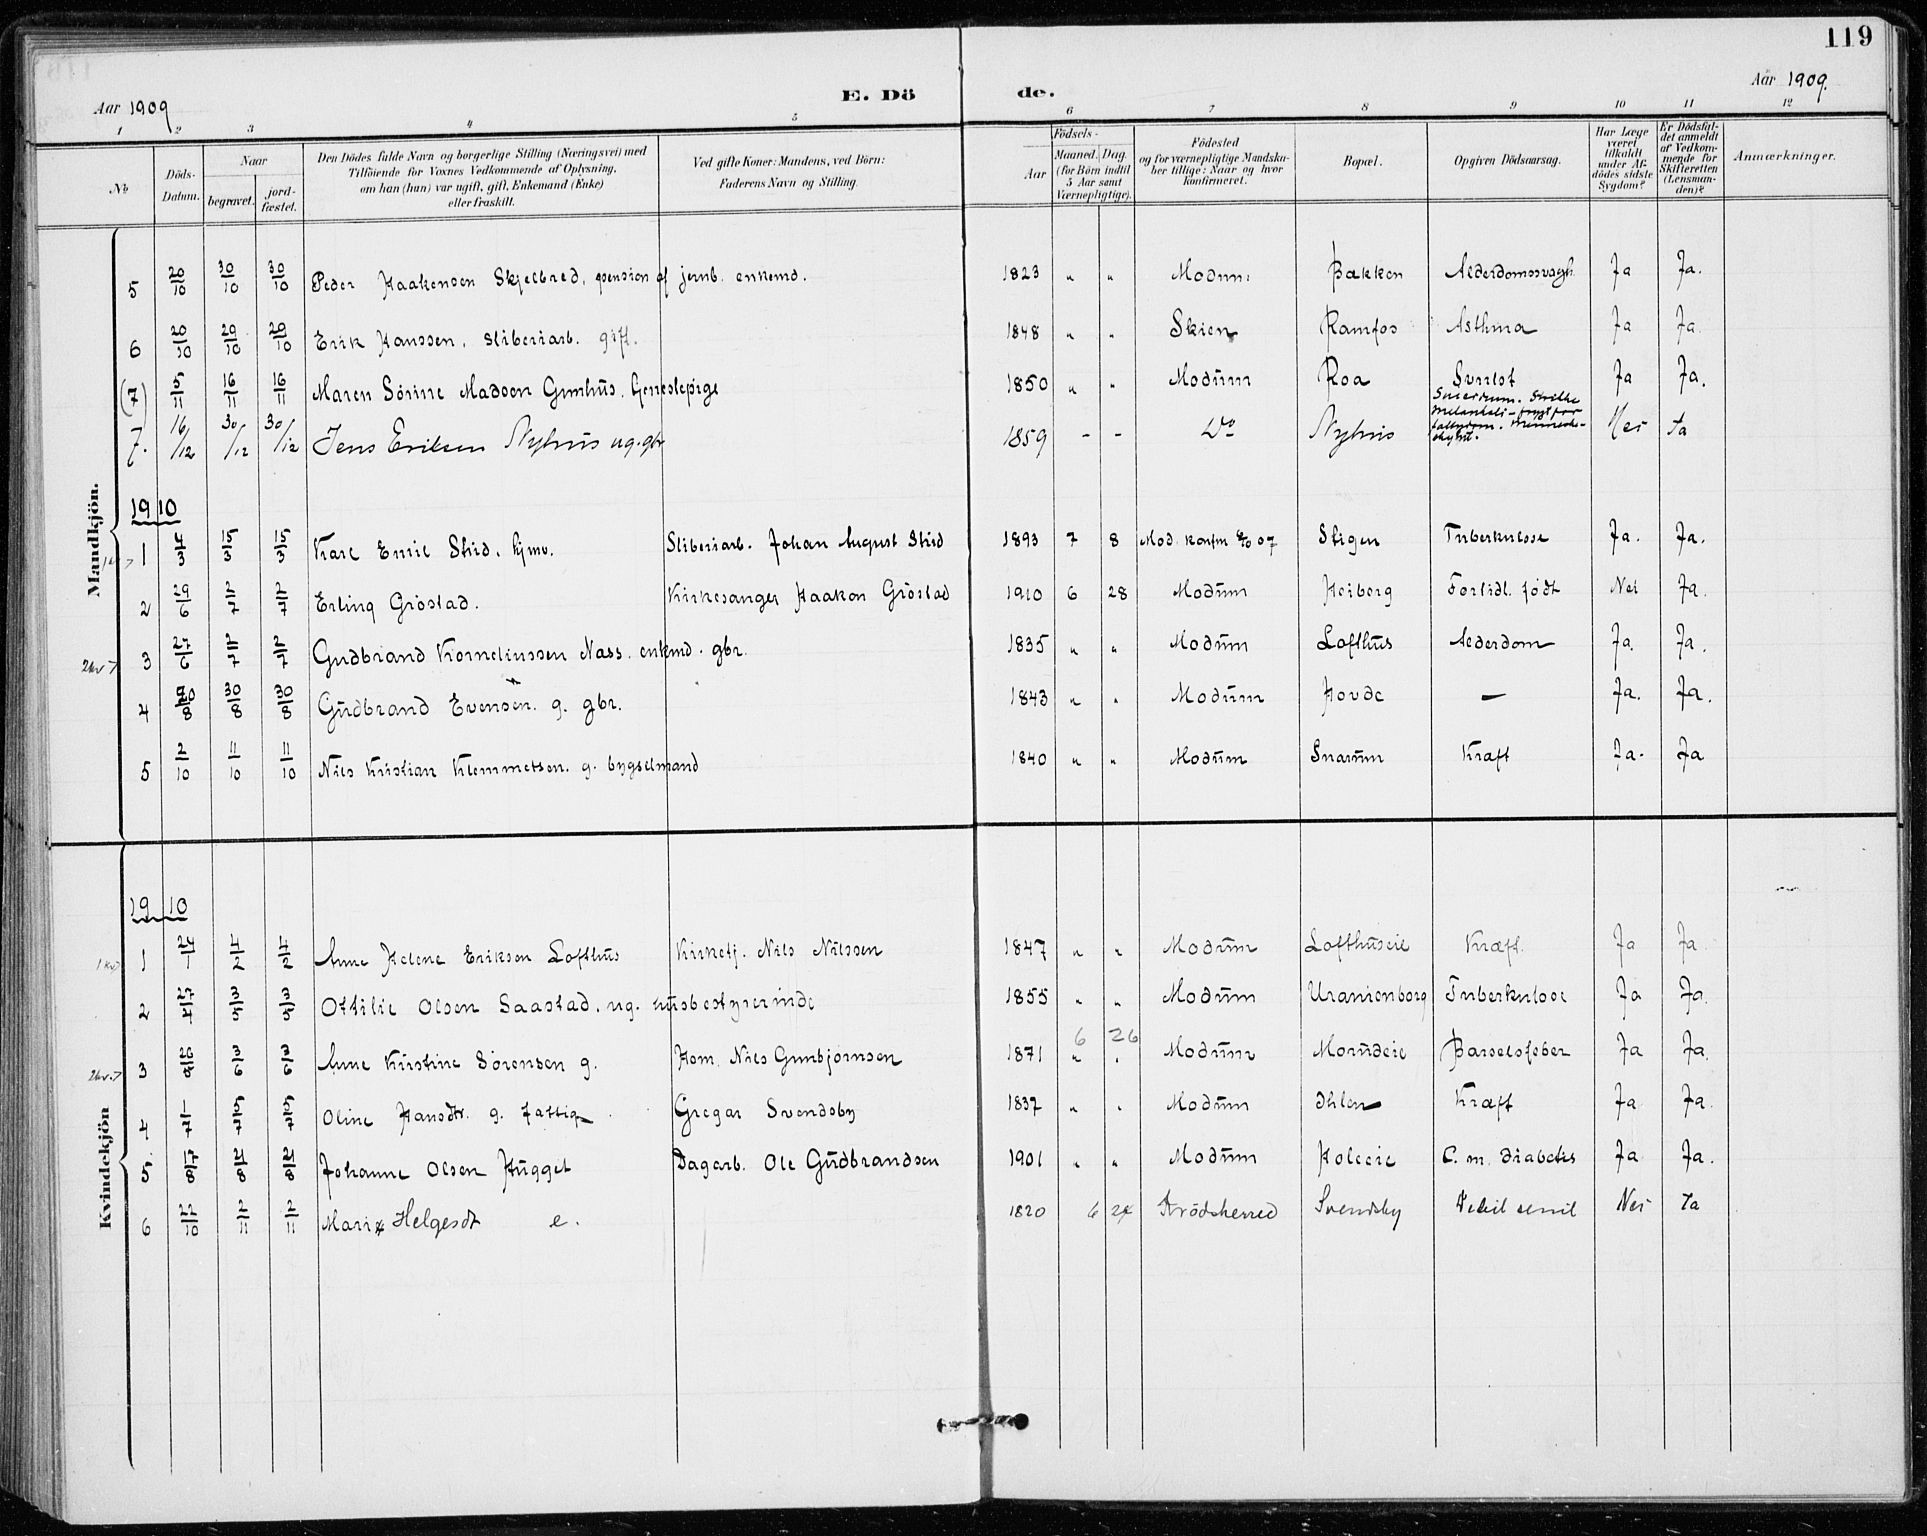 119
Aar 1909 E. Dö de. Aar 1909.
1 2 3 4 5 6 7 8 9 10 11 12
No
Döds-Datum.
Naar
begravet.
jord-fæstet.
Den Dödes fulde Navn og borgerlige Stilling (Næringsvei) med
Tilföiende for Voxnes Vedkommende af Oplysning,
om han (hun) var ugift, gift, Enkemand (Enke)
eller fraskilt.
Ved gifte Koner: Mandens, ved Börn:
Faderens Navn og Stilling.
Födsels-
Aar
Maaned. Dag.
(for Börn indtil
5 Aar samt
Værnepligtige).
Födested
og for værnepligtige Mandska-
ber tillige: Naar og hvor
konfirmeret.
Bopæl.
Opgiven Dödsaarsag.
Har Læge
været
tilkaldt
under Af-
dödes sidste
Sygdom?
Er Dödsfal-
det anmeldt
af Vedkom-
mende for
Skifteretten
(Lensman-
den)?
Anmærkninger.
Mandkjön.
5 20/10 30/10 30/10 Peder Haakensen Skjelbred, pension af jernb. enkemd. 1823 " " Modum Bakken Alderdomssvagh. Ja Ja.
6 20/10 29/10 29/10 Erik Hanssen, sliberiarb. gift. 1848 " " Skien Ramfos Asthma Ja Ja.
(7) 5/11 16/11 16/11 Maren Sörine Madsen Gunhus. 1850 " " Modum Roa Ja Ja.
7. 16/12 30/12 30/12 Jens Eriksen Nyhus ug. gbr 1859 - - Do Nyhus Nei Ja
1910
1 15/3 15/3 Karl Emil Stud. hjmv. Sliberiarb. Johan August Stud 1893 7 8 Mod. konfm 07 Stigen Tuberkulose Ja. Ja.
2 29/6 2/7 2/7 Erling Gröstad. Kirkesanger Haakon Gröstad 1910 6 28 Modum Heiberg Fortidl. födt Nei Ja.
3 27/6 2/7 2/7 Gudbrand Korneliussen Nass. enkmd. gbr. 1835 " " Modum Lofthus Alderdom Ja. Ja.
4 30/8 30/8 Gudbrand Evensen. g. gbr. 1843 " " Modum Hovde — Ja. Ja.
5 2/10 11/10 11/10 Nils Kristian Klemmetsen. g. bygselmand 1840 " " Modum Snarum Kræft Ja. Ja
Kvindekjön
1910
1 4/2 4/2 Anne Helene Eriksen Lofthus Kirketj. Nils Nilssen 1847 " " Modum Lofthuseie Kræft. Ja Ja
2 27/4 3/5 3/5 Ottilie Olsen Saastad. ug. husbestyrerinde 1855 " " Modum Uranienborg Tuberkulose Ja Ja.
6 26
3 3/6 3/6 Anne Kristine Sörensen g. Hom. Nils Gunbjörnsen 1871 " " Modum Morudeie Barselsfeber Ja Ja.
4 1/7 5/7 5/7 Oline Hansdtr. g. fattig Gregar Svendsby 1837 " " Modum Ihlen Kræft Ja Ja.
5 17/8 21/8 21/8 Johanne Olsen Hugget Dagarb. Ole Gudbrandsen 1901 " " Modum Holeeie C. m. diabetis Ja Ja.
6 22/10 2/11 2/11 Mari Helgesdt e. 1820 6 24 Krödsherred Svendsby Debil senil Nei Ja